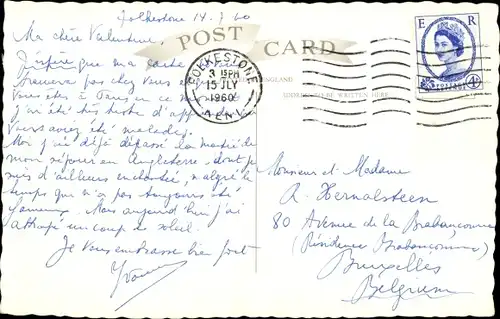 Folkestone 14.7.60
POST CARD
Ma chère Valentine,
J'espère que ma carte
trouvera pas chez vous
vous êtes à
j'ai été très triste d'app
vous avez été malade.
Moi j'ai déjà dépassé la moitié de
mon séjour en Angleterre, dont je
suis d'ailleurs enchantée, malgré le
temps qui n'a pas toujours été
fameux. Mais aujourd'hui j'ai
attrapé un coup de soleil.
Je vous embrasse bien fort
Yvonne
FOLKESTONE
3 15PM
15 JLY
1960
KENT
E R
POSTAGE
4D
ENGLAND
ADDRESS TO BE WRITTEN HERE
Monsieur et Madame
A. Hernalsteen
80 Avenue de la Brabançonne
(Résidence Brabançonne)
Bruxelles
Belgique